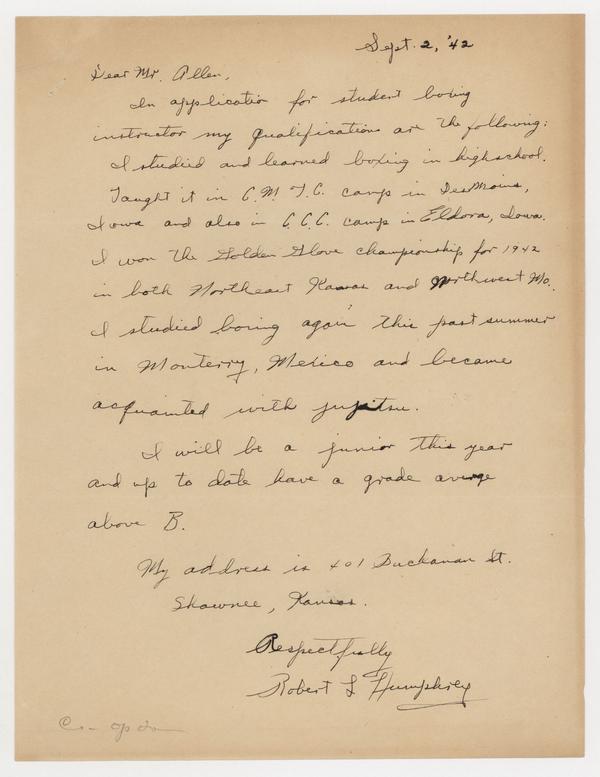 Sept. 2, '42
Dear Mr. Allen,
In application for student boxing
instructor my qualifications are the following:
I studied and learned boxing in highschool.
Taught it in C.M.T.C. camp in DesMoins,
Iowa and also in C.C.C. camp in Eldora, Iowa.
I won the Golden Glove championship for 1942
in both Northeast Kansas and Northwest Mo.
I studied boxing again this past summer
in Monterry, Mexico and became
acquainted with jujitsu.
I will be a junior this year
and up to date have a grade averge
above B.
My address is 401 Buchanan St.
Shawnee, Kansas.
Respectfully
Robert L Humphrey
Co-op